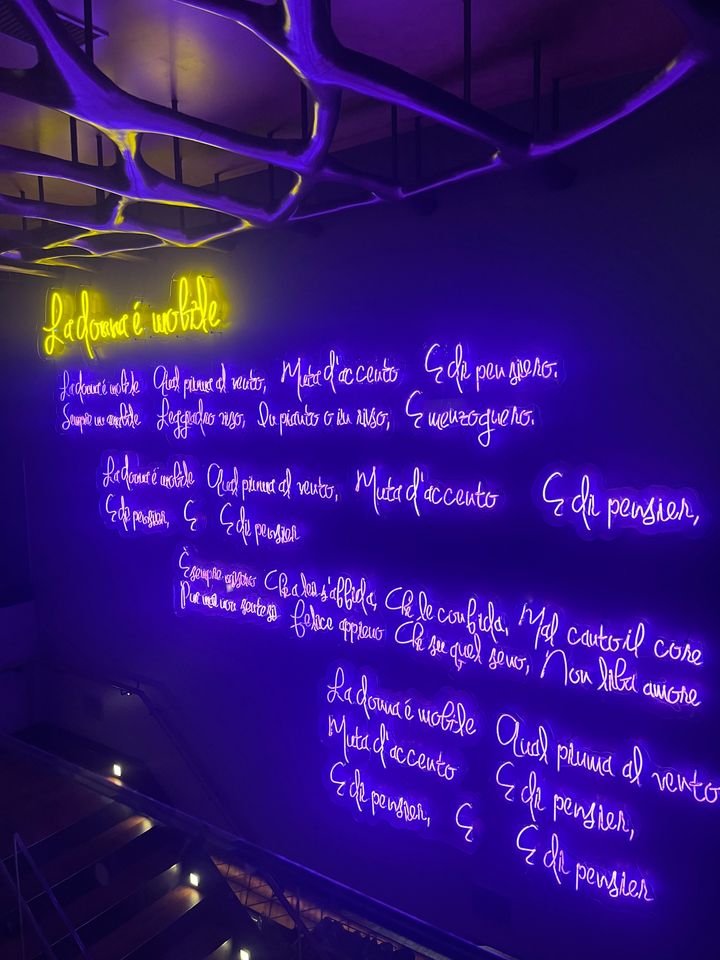 La donna é mobile
La donna é mobile Qual piuma al vento, Muta d'accento E di pensiero.
Sempre un amabile Leggiadro viso, In pianto o in riso, È menzognero.
La donna é mobile Qual piuma al vento, Muta d'accento E di pensier,
E di pensier, E E di pensier
È sempre misero Chi a lei s'affida, Chi le confida, Mal cauto il core
Pur mai non sentesi Felice appieno Chi su quel seno, Non liba amore
La donna é mobile Qual piuma al vento
Muta d'accento E di pensier,
E di pensier, E E di pensier